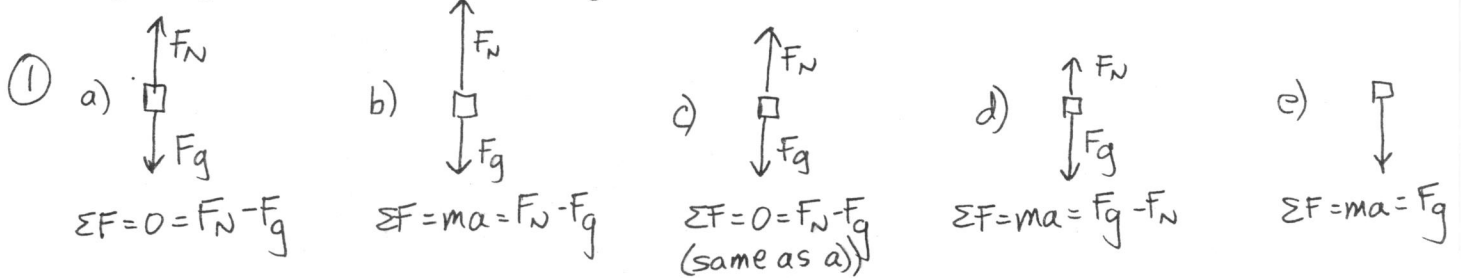 ① a) F_N F_g ΣF=0=F_N-F_g
b) F_N F_g ΣF=ma=F_N-F_g
c) F_N F_g ΣF=0=F_N-F_g
(same as a))
d) F_N F_g ΣF=ma=F_g-F_N
e) ΣF=ma=F_g